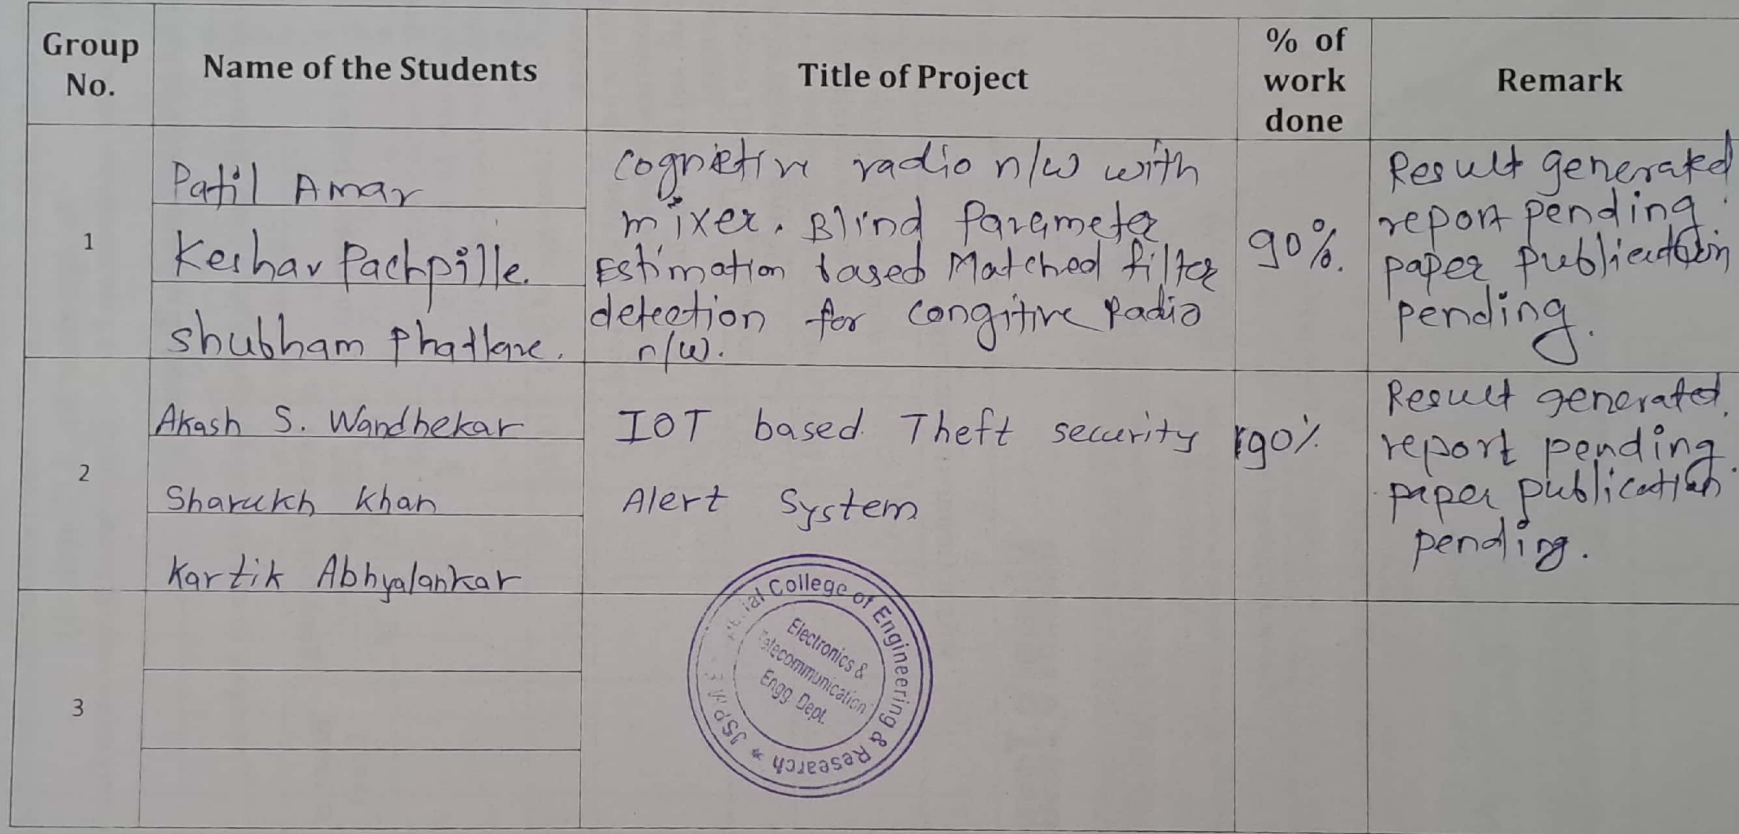 Group No.
Name of the Students
Title of Project
% of work done
Remark
1
Patil Amar
Keshav Pachpille.
Shubham Phatlare.
Cognietive radio n/w with
mixer. Blind Parameter
Estimation based Matched filter
detection for Congitive Radio
n/w.
90%.
Result generated
report pending.
paper publication
pending.
2
Akash S. Wandhekar
Sharukh Khan
Kartik Abhyalankar
IOT based Theft security
Alert System
90%
Result generated.
report pending.
paper publication
pending.
3
College of Engineering & Research * JSPM
Electronics &
Telecommunication
Engg. Dept.